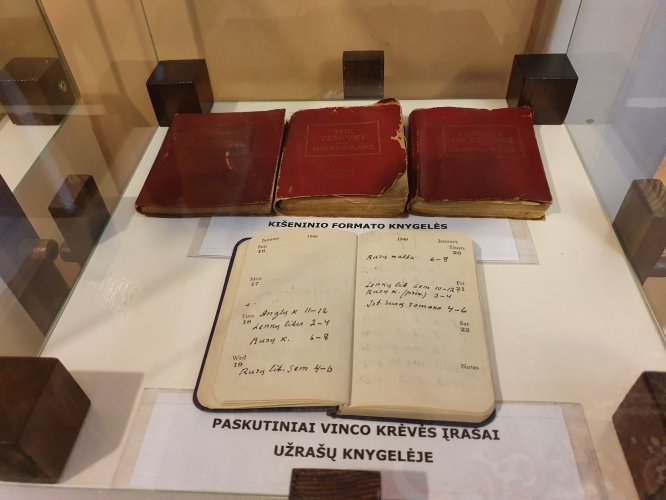 THE
TEMPEST
SHAKESPEARE
COMEDY
OF ERRORS
SHAKESPEARE
KIŠENINIO FORMATO KNYGELĖS
January 1949
Sun
16
Mon
17
Tues
18
Anglų k 11-12
Lenkų liter 2-4
Rusų k. 6-8
Wed
19
Rusų lit. Sem 4-6
1949 January
Thurs
20
Rusų kalba 6-8
Fri
21
Lenkų lit Sem 10-12
Rusų k. (priv) 3-4
Ist. rusų romano 4-6
Sat
22
Notes
PASKUTINIAI VINCO KRĖVĖS ĮRAŠAI
UŽRAŠŲ KNYGELĖJE